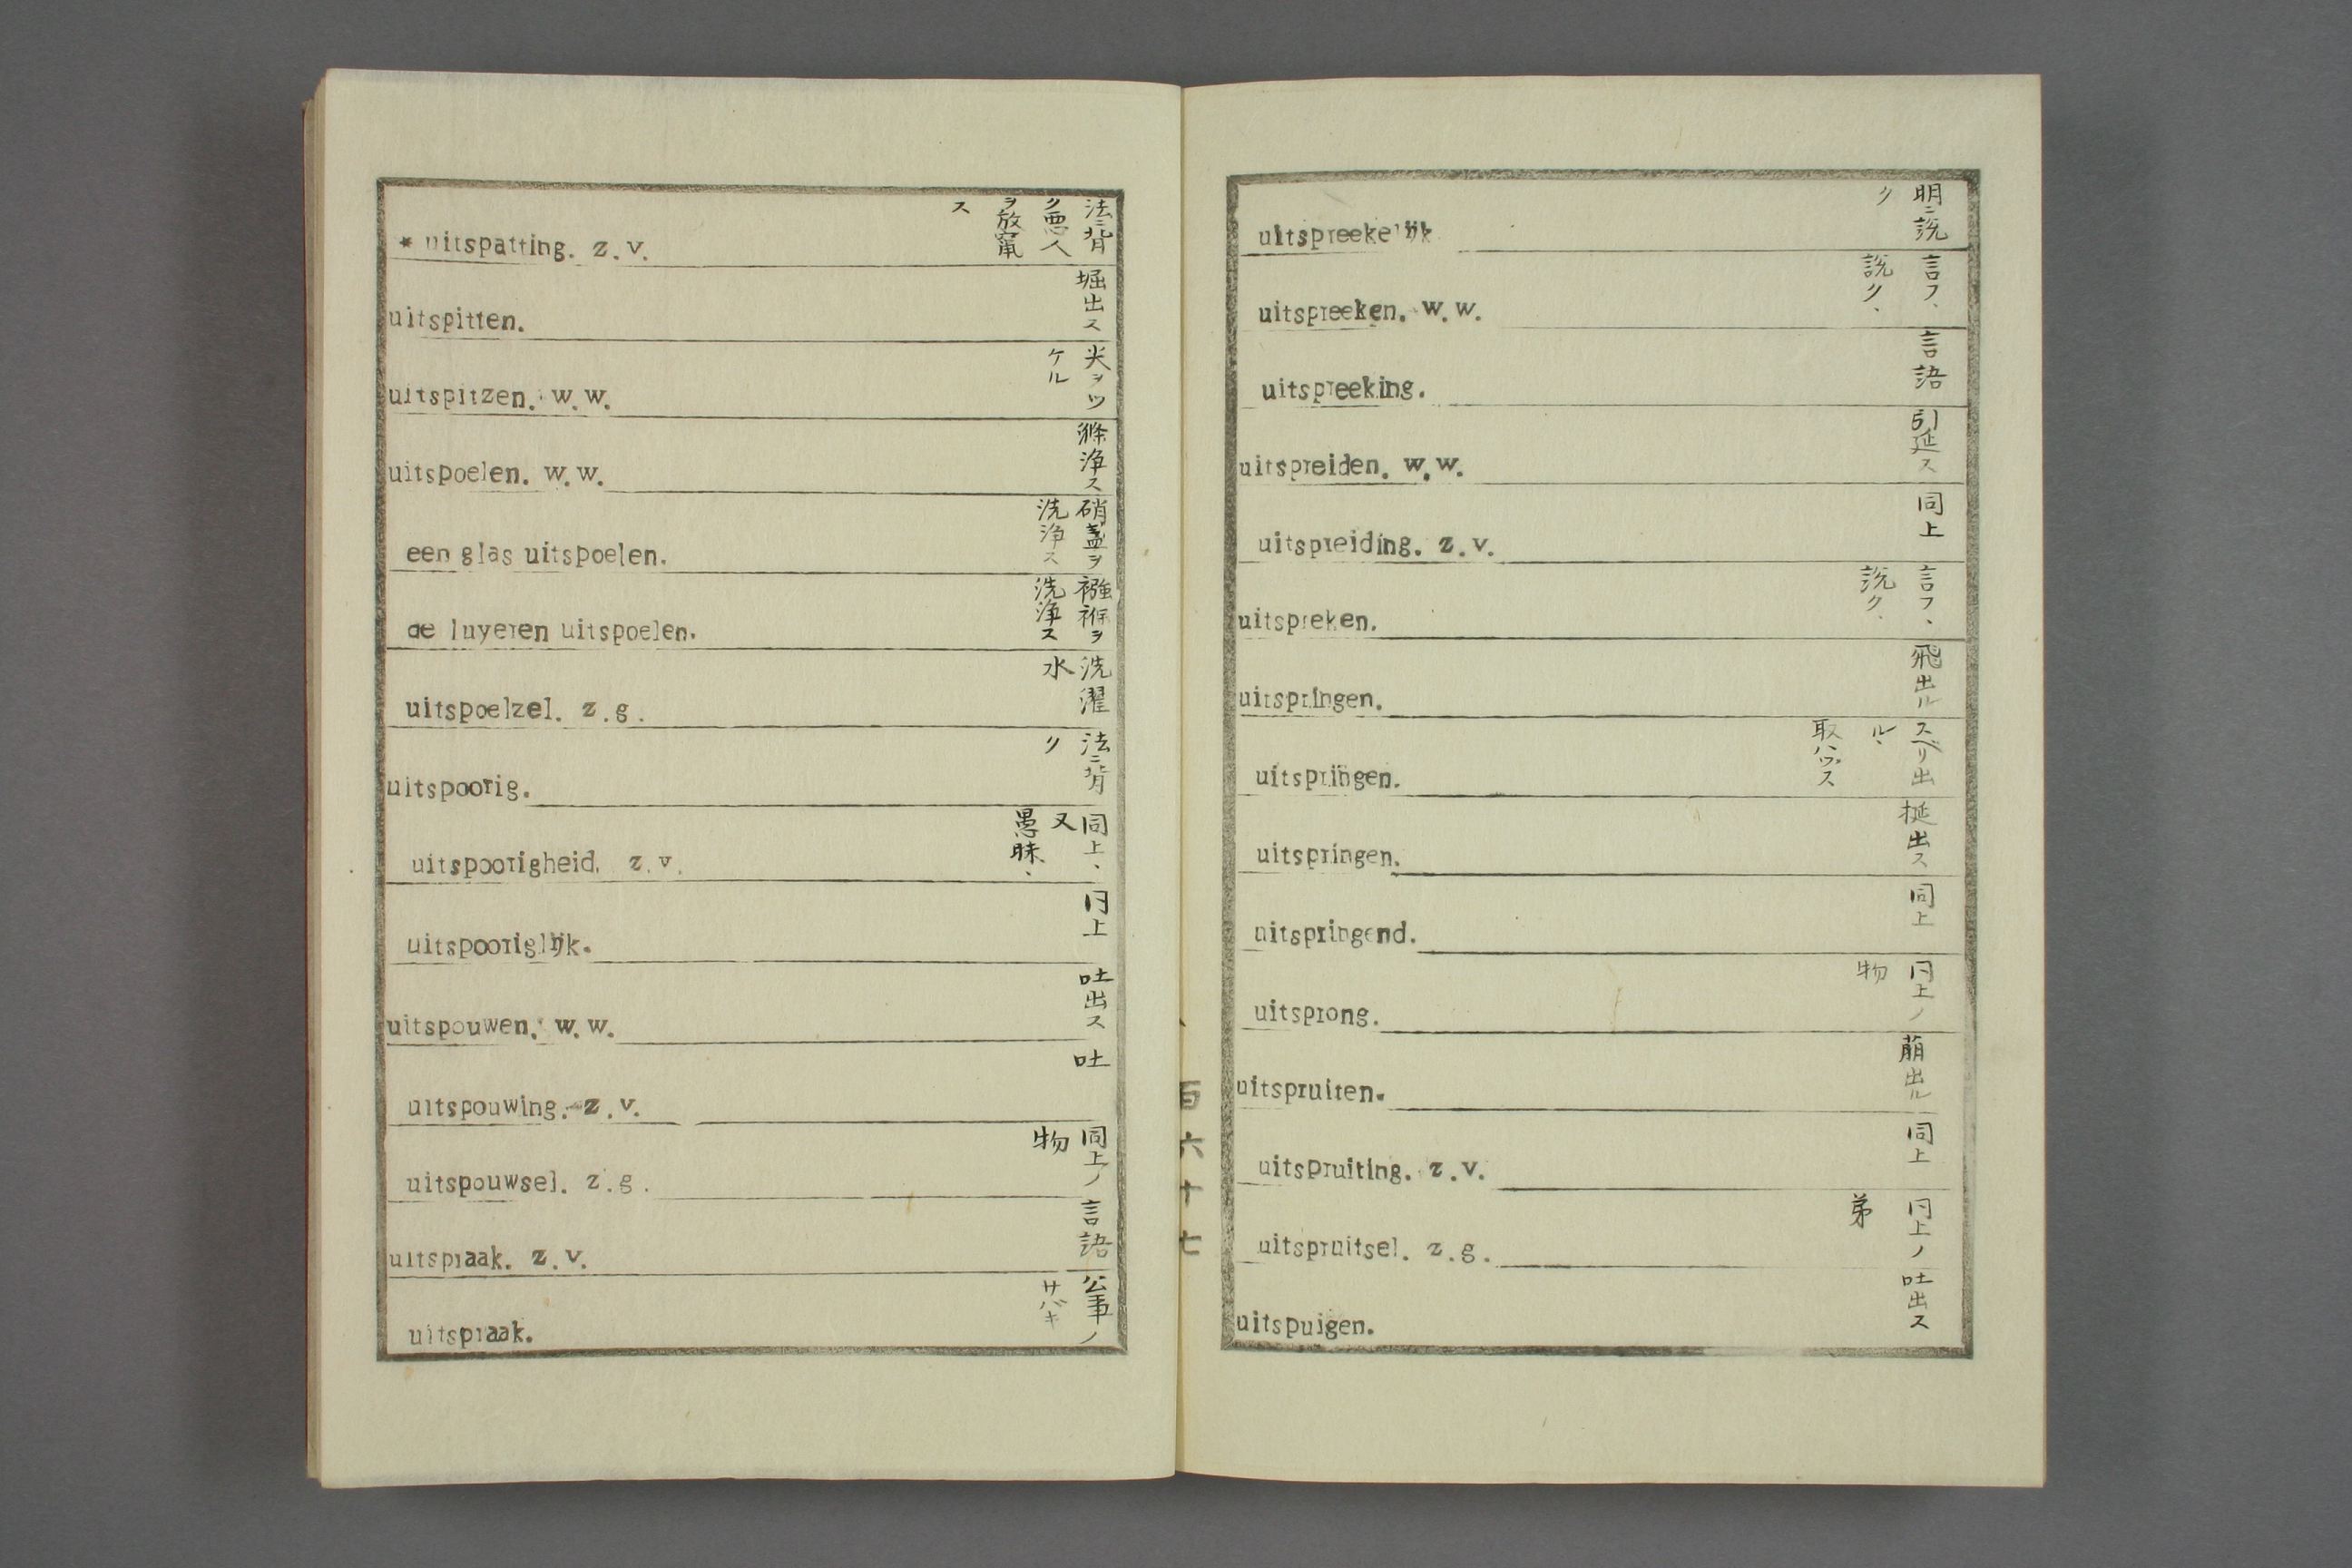 * uitspatting. z.v. 法ニ背ク悪人ヲ放竄ス
uitspitten. 堀出ス
uitspitzen. w.w. 尖ヲツケル
uitspoelen. w.w. 滌浄ス
een glas uitspoelen. 硝盞ヲ洗浄ス
de luyeren uitspoelen. 襁褓ヲ洗浄ス
uitspoelzel. z.g. 洗濯水
uitspoorig. 法ニ背ク
uitspoorigheid. z.v. 同上、又愚昧、
uitspooriglijk. 同上
uitspouwen. w.w. 吐出ス
uitspouwing. z.v. 吐
uitspouwsel. z.g. 同上ノ物
uitspraak. z.v. 言語
uitspraak. 公事ノサバキ
百六十七
uitspreekelijk 明ニ説ク
uitspreeken. w.w. 言フ、説ク、
uitspreeking. 言語
uitspreiden. w.w. 引延ス
uitspreiding. z.v. 同上
uitspreken. 言フ、説ク、
uitspringen. 飛出ル
uitspringen. スベリ出ル、取ハヅス
uitspringen. 挻出ス
uitspringend. 同上
uitsprong. 同上ノ物
uitspruiten. 萠出ル
uitspruiting. z.v. 同上
uitspruitsel. z.g. 同上ノ弟
uitspuigen. 吐出ス